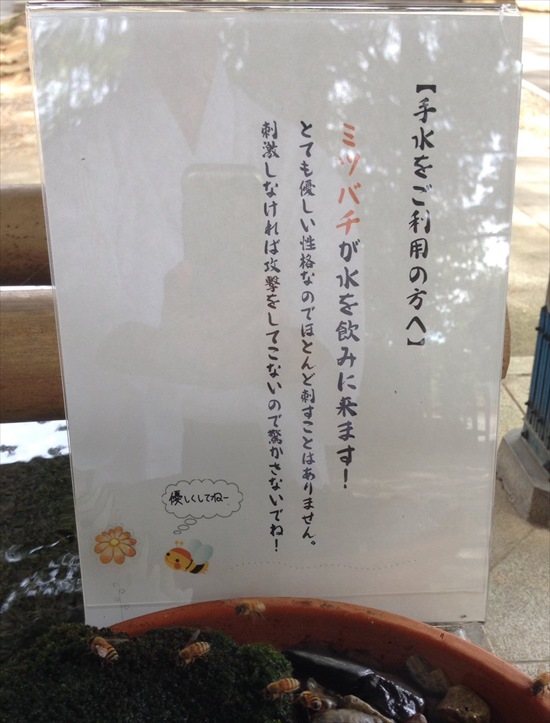 【手水をご利用の方へ】
ミツバチが水を飲みに来ます！
とても優しい性格なのでほとんど刺すことはありません。
刺激しなければ攻撃をしてこないので驚かさないでね！
優しくしてねー